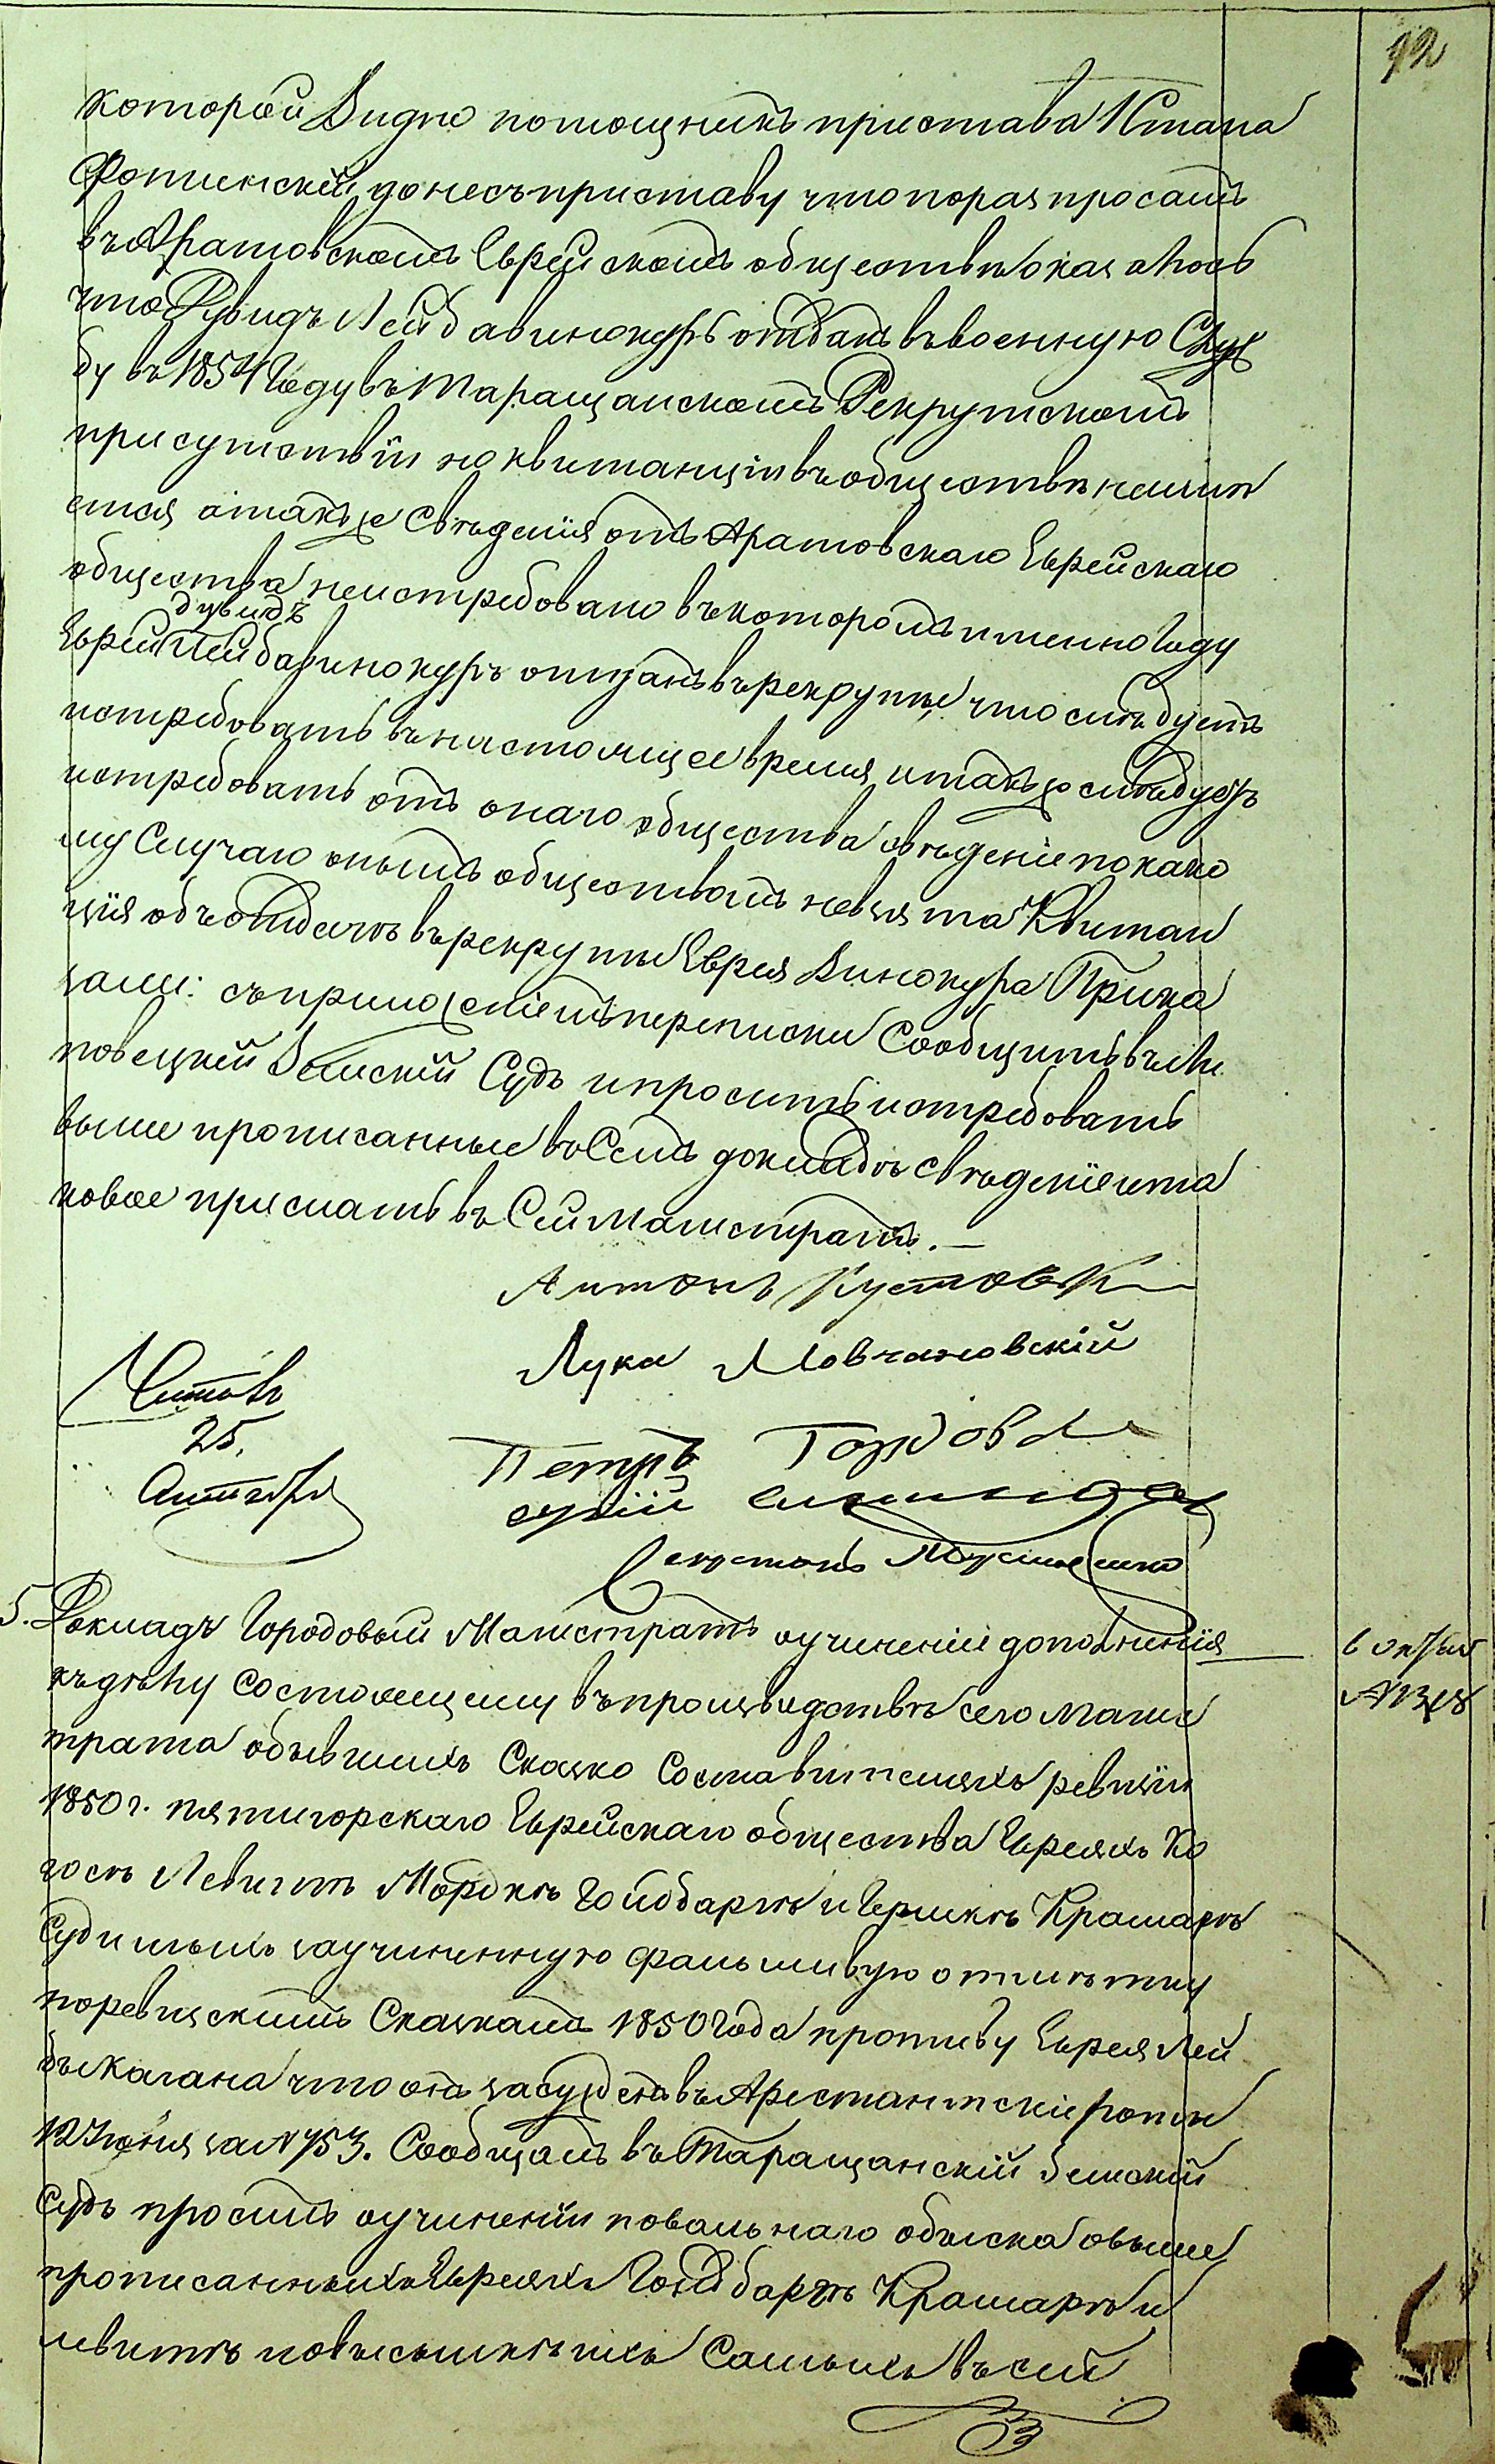 92
которой видно помощникъ пристава 1 Стана
Фотинскій донесъ приставу что по разпросамъ
въ Аратовскомъ Еврейскомъ обществѣ оказалось
что Дувидъ Лейба Винокуръ отданъ въ военную Служ
бу въ 1854 Году въ Таращанскомъ Рекрутскомъ
присутствіи но квитанціи въ обществѣ неимѣ
ется а также Свѣденія отъ Аратовскаго Еврейскаго
общества неистребовано въ которомъ именно Году
дувидъ
Еврей Лейба Винокуръ отданъ въ рекруты что слѣдуетъ
истребовать въ настоящее время, и также слѣдуетъ
истребовать отъ онаго общества свѣденіе по како
му Случаю онымъ обществомъ не взята Квитан
ція объ отдачѣ въ рекруты Еврея Винокура Прика
зали: съ приложеніемъ переписки Сообщить въ Ли
повецкій Земскій Судъ и просить истребовать
выше прописанные въ Семъ докладѣ свѣденіе и та
ковое прислать въ Сей Магистратъ.—
Антонъ
Лука Мовчановскій
Читалъ
25.
Петръ
Сергій
5. Докладъ Городовый Магистратъ о учиненіи дополненія
къ дѣлу Состоящему въ производствѣ сего Магис
трата обывшихъ Сказко Составителяхъ ревизіи
1850 г. пятигорскаго Еврейскаго общества Евреяхъ Ко
госѣ Левитѣ Мордкѣ Гойдбартѣ и Гершкѣ Крамарѣ
Судимыхъ за учиненную фальшивую отмѣтку
по ревизскимъ Сказкамъ 1850 Года противу Еврея Лей
бы Кагана что онъ засужденъ въ Арестантскіе роты
12 Іюня за N 753. Сообщать въ Таращанскій Земскій
Судъ просить о учиненіи повальнаго обыска о выше
прописанныхъ Евреяхъ Гойдбартѣ Крамарѣ и
левитѣ и о высылкѣ ихъ Самыхъ въ сей